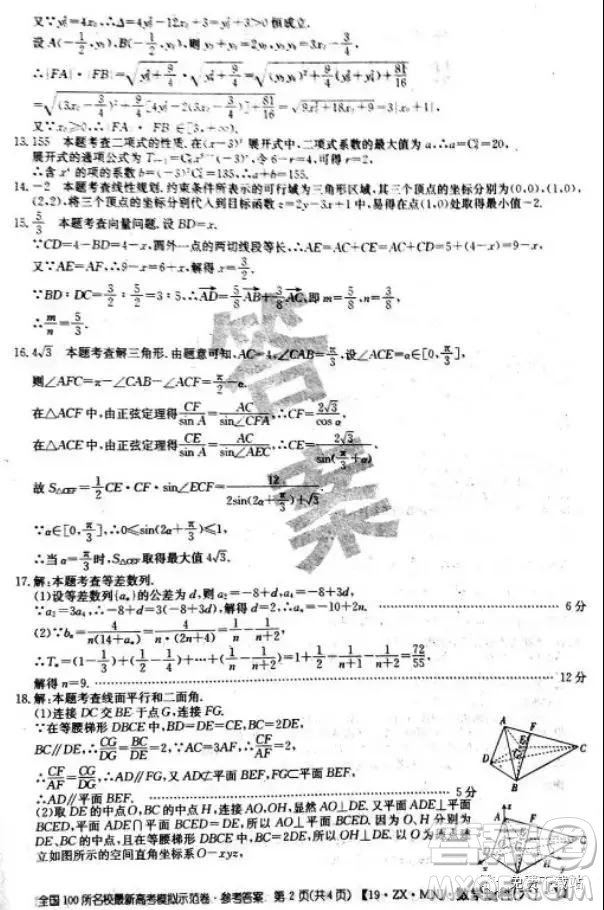 又∵y₀²=4x₀,∴Δ=4y₀²-12x₀+3=y₀²+3>0 恒成立.
设 A(-1/2,y₁),B(-1/2,y₂),则 y₁+y₂=2y₀,y₁y₂=3x₀-3/4,
∴|FA|·|FB|=√(y₁²+9/4)·√(y₂²+9/4)=√((y₁y₂)²+9/4(y₁²+y₂²)+81/16)
=√((3x₀-3/4)²+9/4[4y₀²-2(3x₀-3/4)]+81/16)=√(9x₀²+18x₀+9)=3|x₀+1|,
又∵x₀≥0,∴|FA|·|FB|∈[3,+∞).
13.155 本题考查二项式的性质.在(x-3)⁶展开式中,二项式系数的最大值为 a,∴a=C₆³=20,
展开式的通项公式为 Tᵣ₊₁=C₆ʳx⁶⁻ʳ(-3)ʳ,令 6-r=4,可得 r=2,
∴含 x⁴ 项的系数 b=(-3)²C₆²=135,∴a+b=155.
14.-2 本题考查线性规划.约束条件所表示的可行域为三角形区域,其三个顶点的坐标分别为(0,0),(1,0),
(2,2),将三个顶点的坐标分别代入到目标函数 z=2y-3x+1 中,易得在点(1,0)处取得最小值-2.
15.5/3 本题考查向量问题.设 BD=x.
∵CD=4-BD=4-x,圆外一点的两切线段等长,∴AE=AC+CE=AC+CD=5+(4-x)=9-x,
又∵AE=AF,∴9-x=6+x,解得 x=3/2.
∵BD:DC=3/2:5/2=3:5,∴AD→=5/8AB→+3/8AC→,即 m=5/8,n=3/8,
∴m/n=5/3.
16.4√3 本题考查解三角形.由题意可知,AC=4,∠CAB=π/3.设∠ACE=α∈[0,π/3],
则∠AFC=π-∠CAB-∠ACF=π/2-α.
在△ACF 中,由正弦定理得CF/sin A=AC/sin∠CFA,∴CF=2√3/cos α.
在△ACE 中,由正弦定理得CE/sin A=AC/sin∠AEC,∴CE=2√3/sin(π/3+α)
故 S△CEF=1/2CE·CF·sin∠ECF=12/(2sin(2α+π/3)+√3)
∵α∈[0,π/3],∴0≤sin(2α+π/3)≤1,
∴当 α=π/3时,S△CEF取得最大值 4√3.
17.解:本题考查等差数列.
(1)设等差数列{aₙ}的公差为 d,则 a₂=-8+d,a₄=-8+3d,
∵a₂=3a₄,∴-8+d=3(-8+3d),解得 d=2,∴aₙ=-10+2n. 6 分
(2)∵bₙ=4/(n(14+aₙ))=4/(n·(2n+4))=2/(n(n+2))=1/n-1/(n+2),
∴Tₙ=(1-1/3)+(1/2-1/4)+…+(1/n-1/(n+2))=1+1/2-1/(n+1)-1/(n+2)=72/55,
解得 n=9. 12 分
18.解:本题考查线面平行和二面角.
(1)连接 DC 交 BE 于点 G,连接 FG.
∵在等腰梯形 DBCE 中,BD=DE=CE,BC=2DE,
BC∥DE,∴CG/DG=BC/DE=2,∵AC=3AF,∴CF/AF=2,
∴CF/AF=CG/DG,∴AD∥FG,又 AD⊄平面 BEF,FG⊂平面 BEF,
∴AD∥平面 BEF. 5 分
(2)取 DE 的中点 O,BC 的中点 H,连接 AO,OH,显然 AO⊥DE.又平面 ADE⊥平面
BCED,平面 ADE∩平面 BCED=DE,所以 AO⊥平面 BCED.因为 O,H 分别为
DE,BC 的中点,且在等腰梯形 DBCE 中,BC=2DE,所以 OH⊥DE.以 O
为原点,建立如图所示的空间直角坐标系 O-xyz,
全国 100 所名校最新高考模拟示范卷·参考答案 第 2 页(共4页) 【19·ZX·MNJ
答案
A
F
E
G
D
B
C